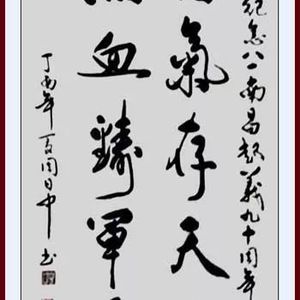 纪念八一南昌起義九十周年
氣存天
血鑄軍
丁酉年夏周日中书